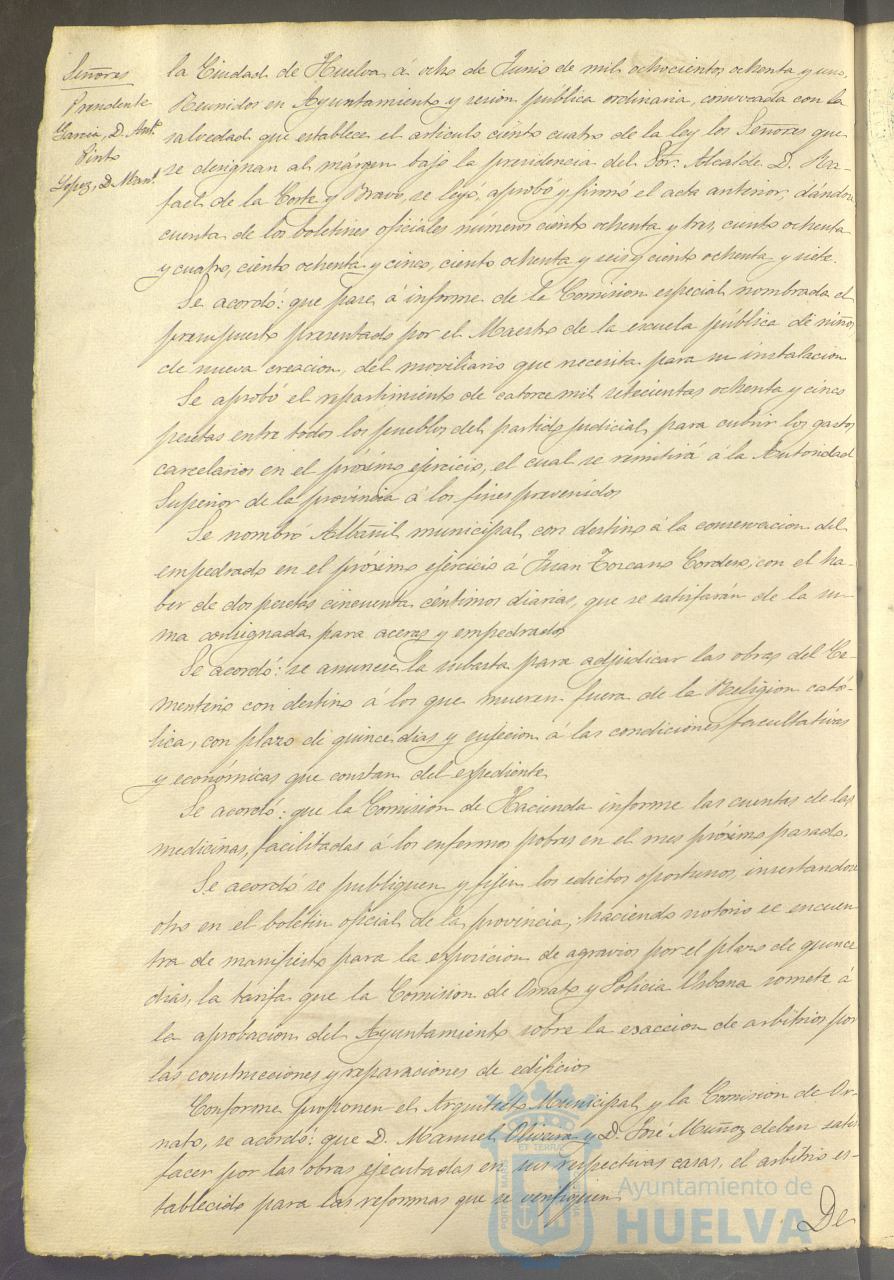 Señores
Presidente
Garcia, D. Ant.º
Pinto
Lopez, D. Man.l
la Ciudad de Huelva á ocho de Junio de mil ochocientos ochenta y uno,
Reunidos en Ayuntamiento y sesion publica ordinaria, convocada con la
salvedad que establece el articulo ciento cuatro de la ley los Señores que
se designan al margen bajo la presidencia del Sor. Alcalde D. Ra-
fael de la Corte y Bravo, se leyó, aprobó y firmó el acta anterior, dándose
cuenta de los boletines oficiales números ciento ochenta y tres, ciento ochenta
y cuatro, ciento ochenta y cinco, ciento ochenta y seis y ciento ochenta y siete.
Se acordó: que pase á informe de la Comision especial nombrada el
presupuesto presentado por el Maestro de la escuela pública de niños
de nueva creacion, del moviliario que necesita para su instalacion
Se aprobó el repartimiento de catorce mil setecientas ochenta y cinco
pesetas entre todos los pueblos del partido judicial para cubrir los gastos
carcelarios en el próximo ejercicio, el cual se remitirá á la Autoridad
Superior de la provincia á los fines prevenidos
Se nombró Albañil municipal con destino á la conservacion del
empedrado en el próximo ejercicio á Juan Toscano Cordero, con el ha-
ber de dos pesetas cincuenta céntimos diarias, que se satisfarán de la su-
ma consignada para aceras y empedrados
Se acordó: se anuncie la subasta para adjudicar las obras del Ce-
menterio con destino á los que mueren fuera de la Religion cató-
lica, con plazo de quince dias y sujecion á las condiciones facultativas
y económicas que constan del expediente
Se acordó: que la Comision de Hacienda informe las cuentas de las
medicinas, facilitadas á los enfermos pobres en el mes próximo pasado.
Se acordó se publiquen y fijen los edictos oportunos, insertandose
otro en el boletin oficial de la provincia, haciendo notorio se encuen
tra de manifiesto para la exposicion de agravios por el plazo de quince
dias, la tarifa que la Comision de Ornato y Policia Urbana somete á
la aprobacion del Ayuntamiento sobre la esaccion de arbitrios por
las construcciones y reparaciones de edificios
Conforme proponen el Arquitecto Municipal y la Comision de Or-
nato, se acordó: que D. Manuel Olivera y D. José Muñoz deben satis
facer por las obras ejecutadas en sus respectivas casas, el arbitrio es-
tablecido para las reformas que se verifiquen.
De
Ayuntamiento de
HUELVA